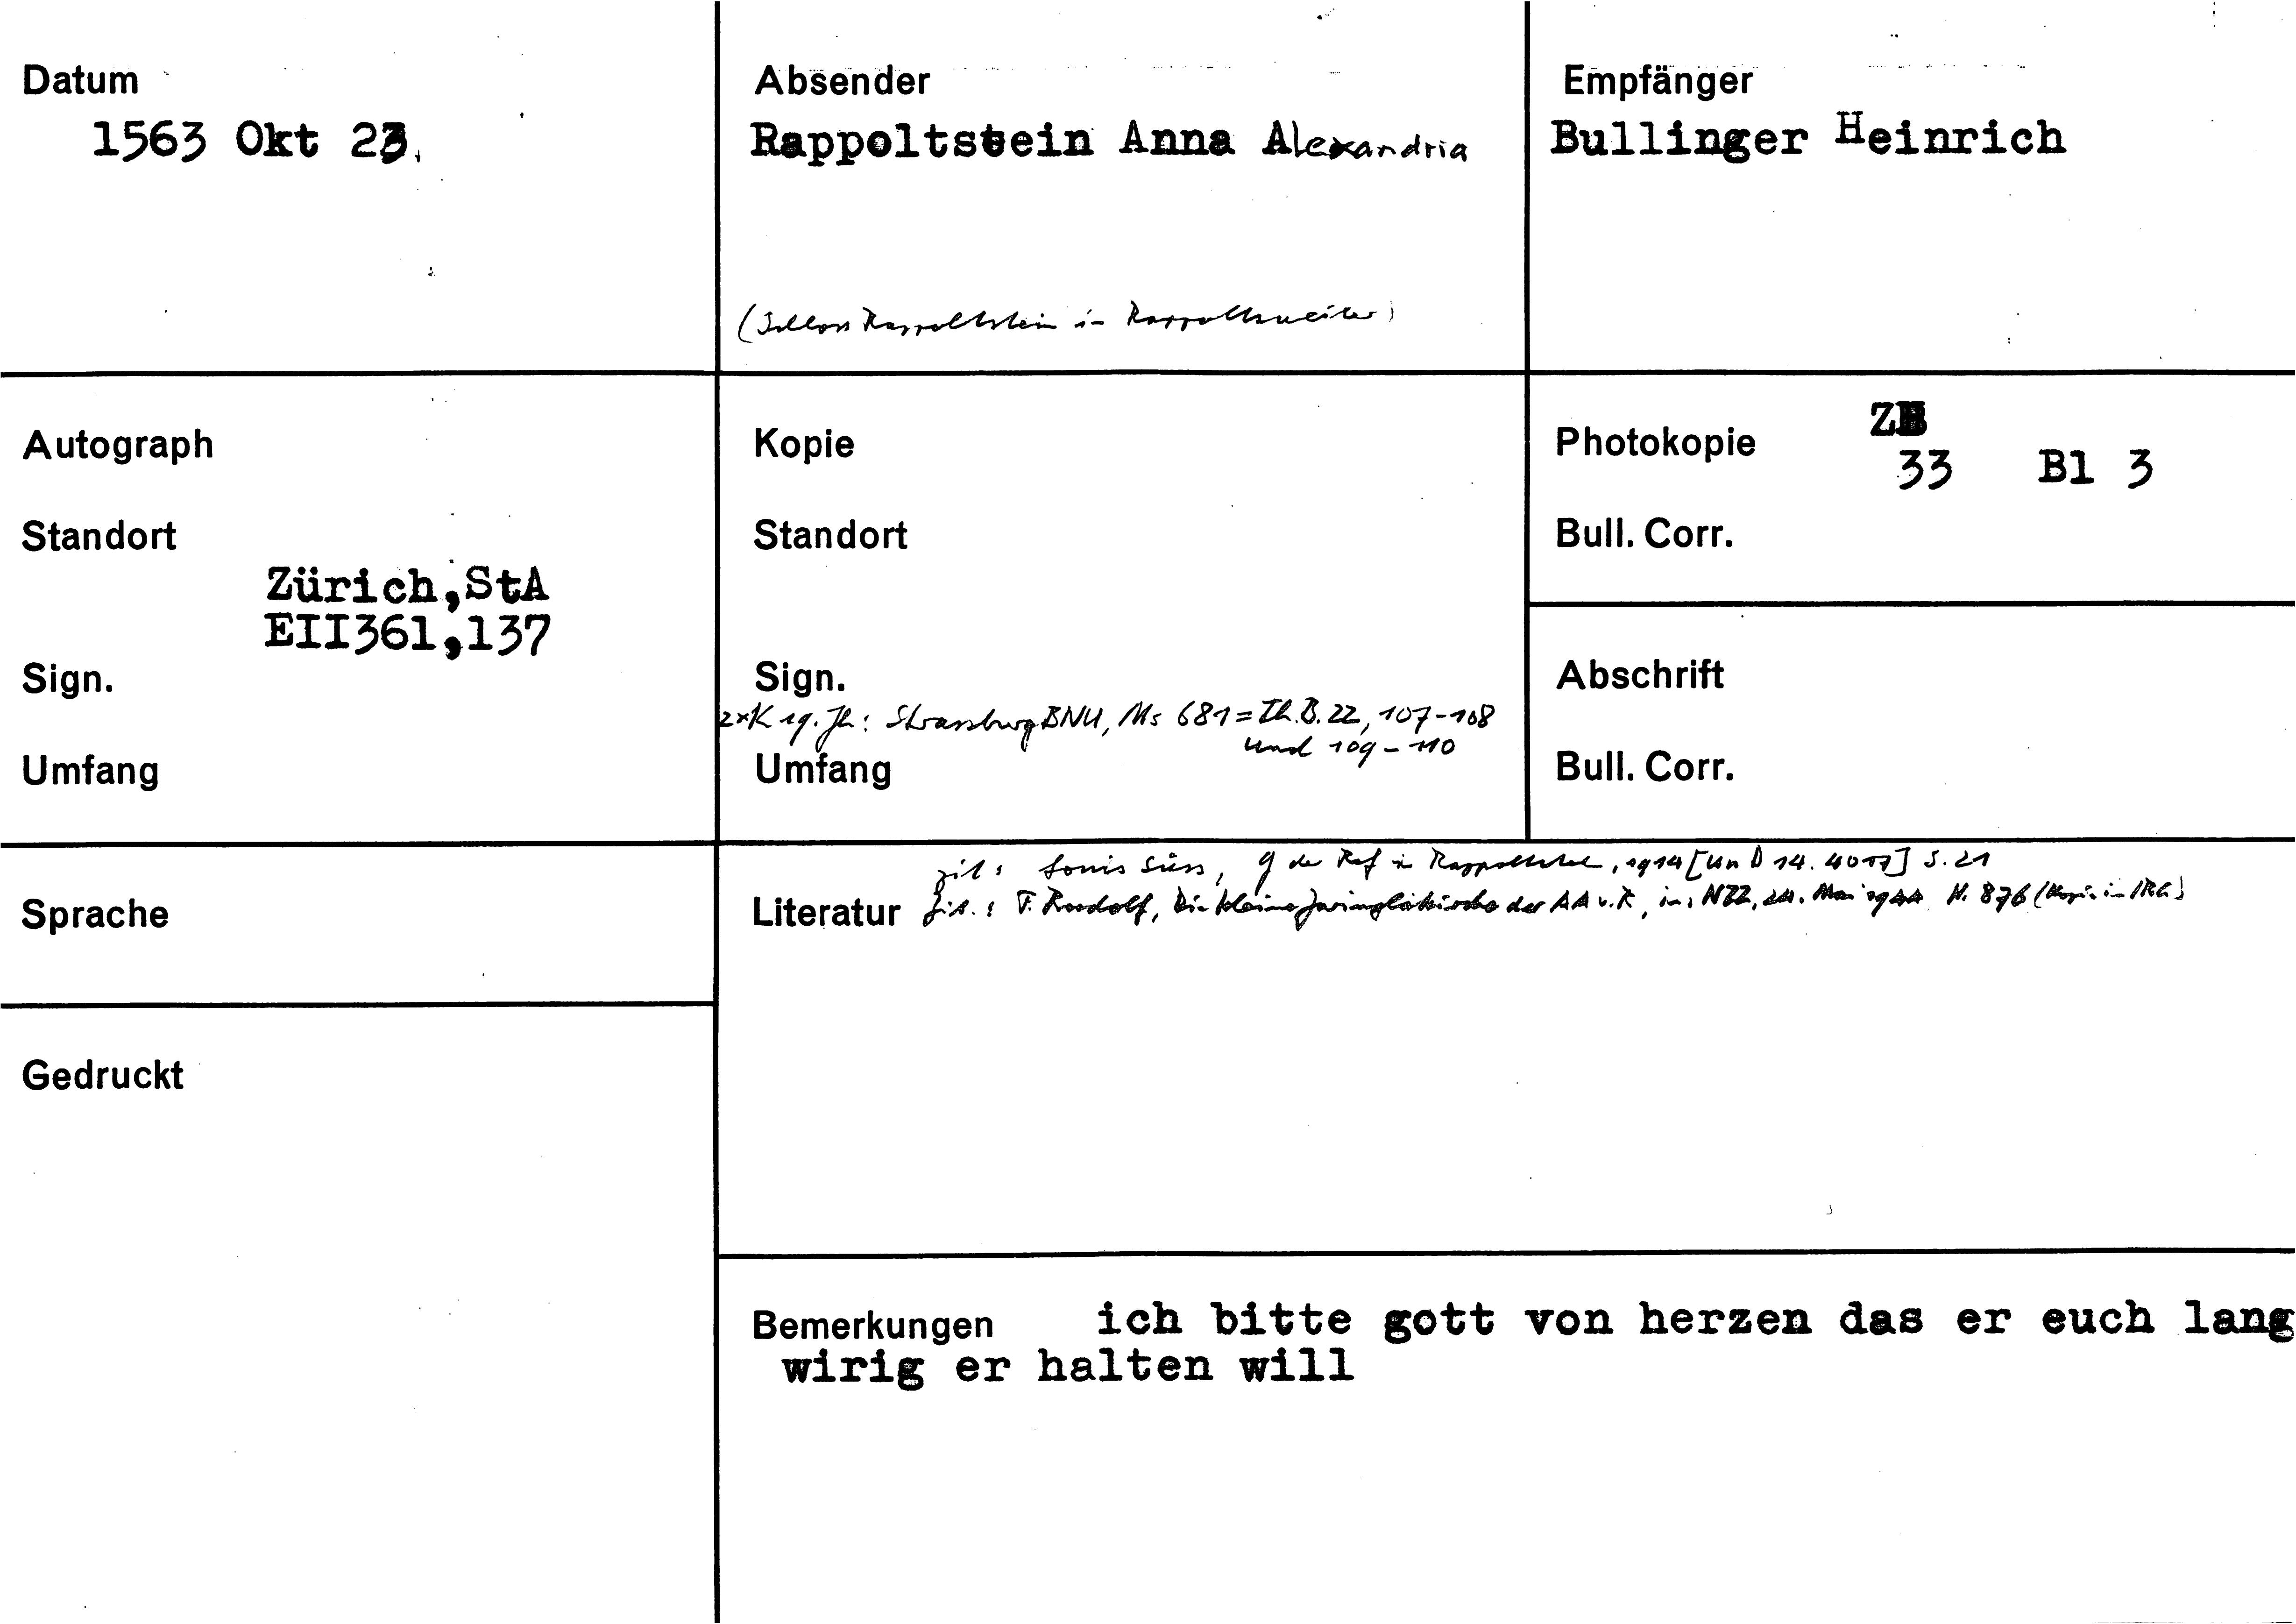 Datum
1563 Okt 23.
Absender
Rappoltstein Anna Alexandria
(Schloss Rappoltstein in Rappoltsweiler)
Empfänger
Bullinger Heinrich
Autograph
Standort
Zürich,StA
EII361,137
Sign.
Umfang
Kopie
Standort
Sign.
2xK 19. Jh: Strassburg BNU, Ms 681 = Th. B. 22, 107-108
und 109-110
Umfang
Photokopie ZB
33 Bl 3
Bull. Corr.
Abschrift
Bull. Corr.
Sprache
Gedruckt
zit: Louis Süss, G der Ref in 1914 [Un D 14. 4017] S. 21
Literatur Zit.: T. Die kleine der AA v. R, in: NZZ, Mai 1944 N. 876 (Kopie in IRG)
Bemerkungen ich bitte gott von herzen das er euch lang
wirig er halten will